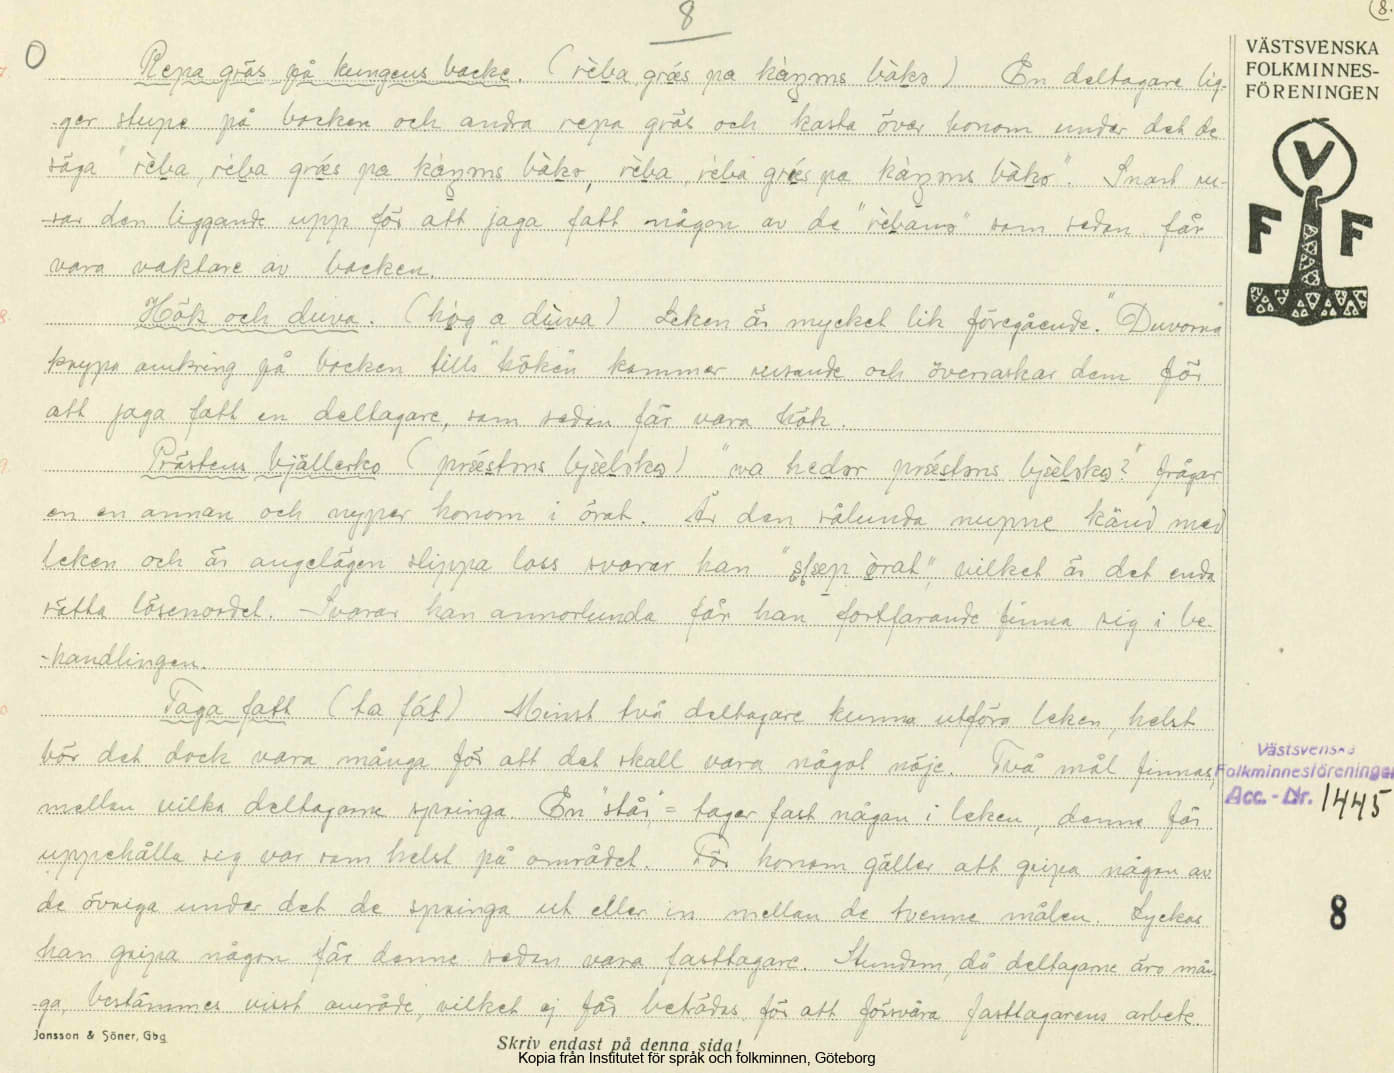 8
8.
O
7.
Repa gräs på kungens backe. (rèba, grǽs pa kàŋəns bàkə) En deltagare lig-
-ger stupe på backen och andra repa gräs och kasta över honom under det de
säga "rèba, rèba grǽs pa kàŋəns bàkə, rèba, rèba grǽs pa kàŋəns bàkə". Snart ru-
-sar den liggande upp för att jaga fatt någon av de "rèbanə" som sedan får
vara vaktare av backen.
8.
Hök och duva. (hög a dùva) Leken är mycket lik föregående. "Duvorna"
krypa omkring på backen tills "höken" kommer rusande och överraskar dem för
att jaga fatt en deltagare, som sedan får vara hök.
9.
Prästens bjällerko (prǽstəns bjèləko) "va hedər prǽstəns bjèləko?" frågar
en en annan och nyper honom i örat. Är den sålunda nupne känd med
leken och är angelägen slippa loss svarar han " örat", vilket är det enda
rätta lösenordet. Svarar han annorlunda får han fortfarande finna sig i be-
-handlingen.
0
Taga fatt (ta fát) Minst två deltagare kunna utföra leken, helst
bör det dock vara många för att det skall vara något nöje. Två mål finnas,
mellan vilka deltagarne springa. En "står" = tager fast någon i leken, denne får
uppehålla sig var som helst på området. För honom gäller att gripa någon av
de övriga under det de springa ut eller in mellan de tvenne målen. Lyckas
han gripa någon får denne sedan vara fasttagare. Stundom, då deltagarne äro mån-
-ga, bestämmes visst område, vilket ej får beträdas, för att försvåra fasttagarens arbete.
Jonsson & Söner, Gbg
Skriv endast på denna sida!
Kopia från Institutet för språk och folkminnen, Göteborg
VÄSTSVENSKA
FOLKMINNES-
FÖRENINGEN
V
F F
Västsvenska
Folkminnesföreningen
Acc. - Nr. 1445
8